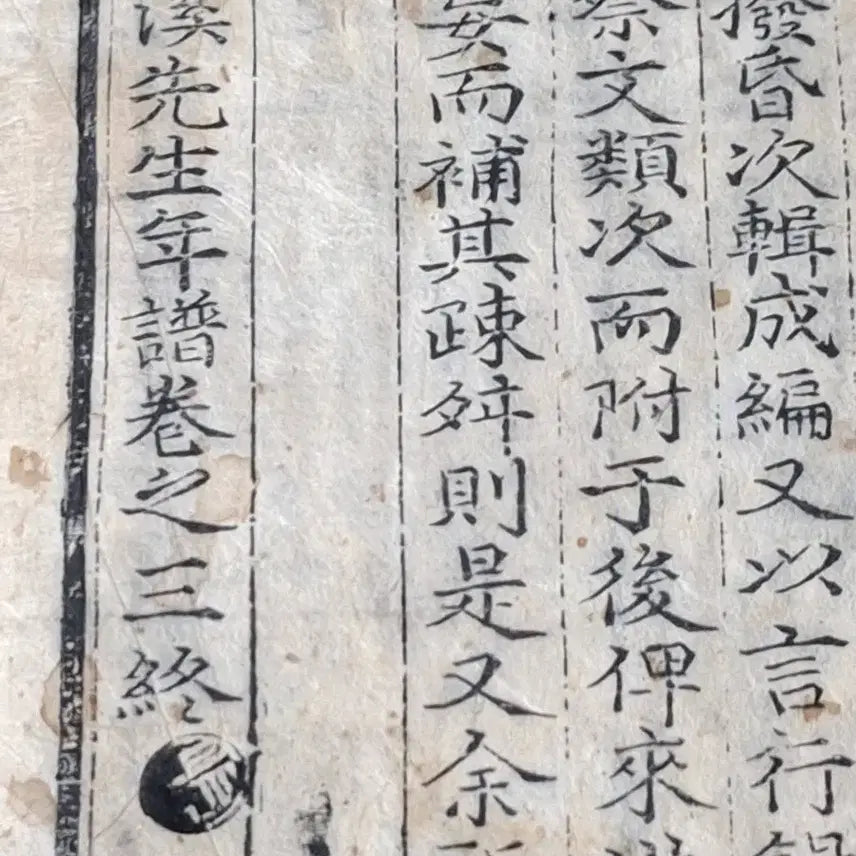 撥昏次輯成編又以言行
祭文類次而附于後俾來
而補其踈舛則是又余
溪先生年譜卷之三終